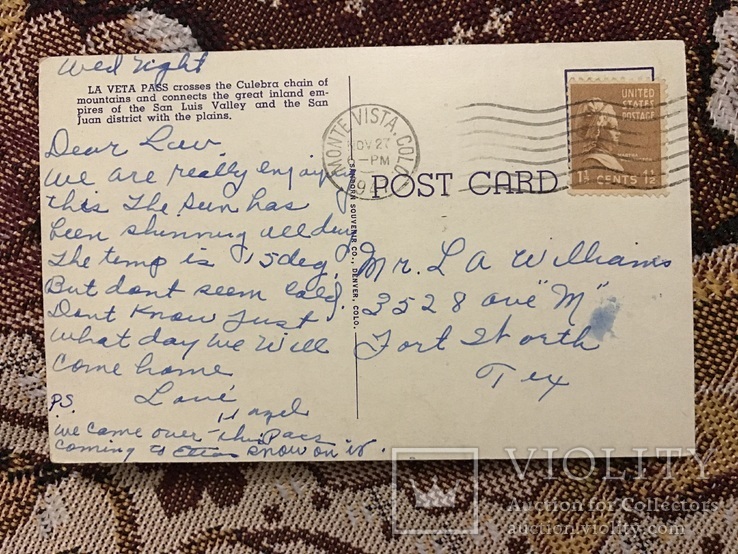 Wed night
LA VETA PASS crosses the Culebra chain of
mountains and connects the great inland em-
pires of the San Luis Valley and the San
Juan district with the plains.
Dear Law.
We are really enjoying
this The sun has
been shinning all day
The temp is 15 deg.
But dont seem cold.
Dont Know Just
what day we will
come home
Love
Hazel
PS.
we came over this Pass
coming to snow on it.
SANBORN SOUVENIR CO., DENVER, COLO.
MONTE VISTA, COLO.
NOV 27
PM
UNITED
STATES
POSTAGE
1½ CENTS 1½
POST CARD
Mr. L A Williams
3528 Ave "M"
Fort Worth
Tex
VIOLITY
Auction for Collectors
auction.violity.com